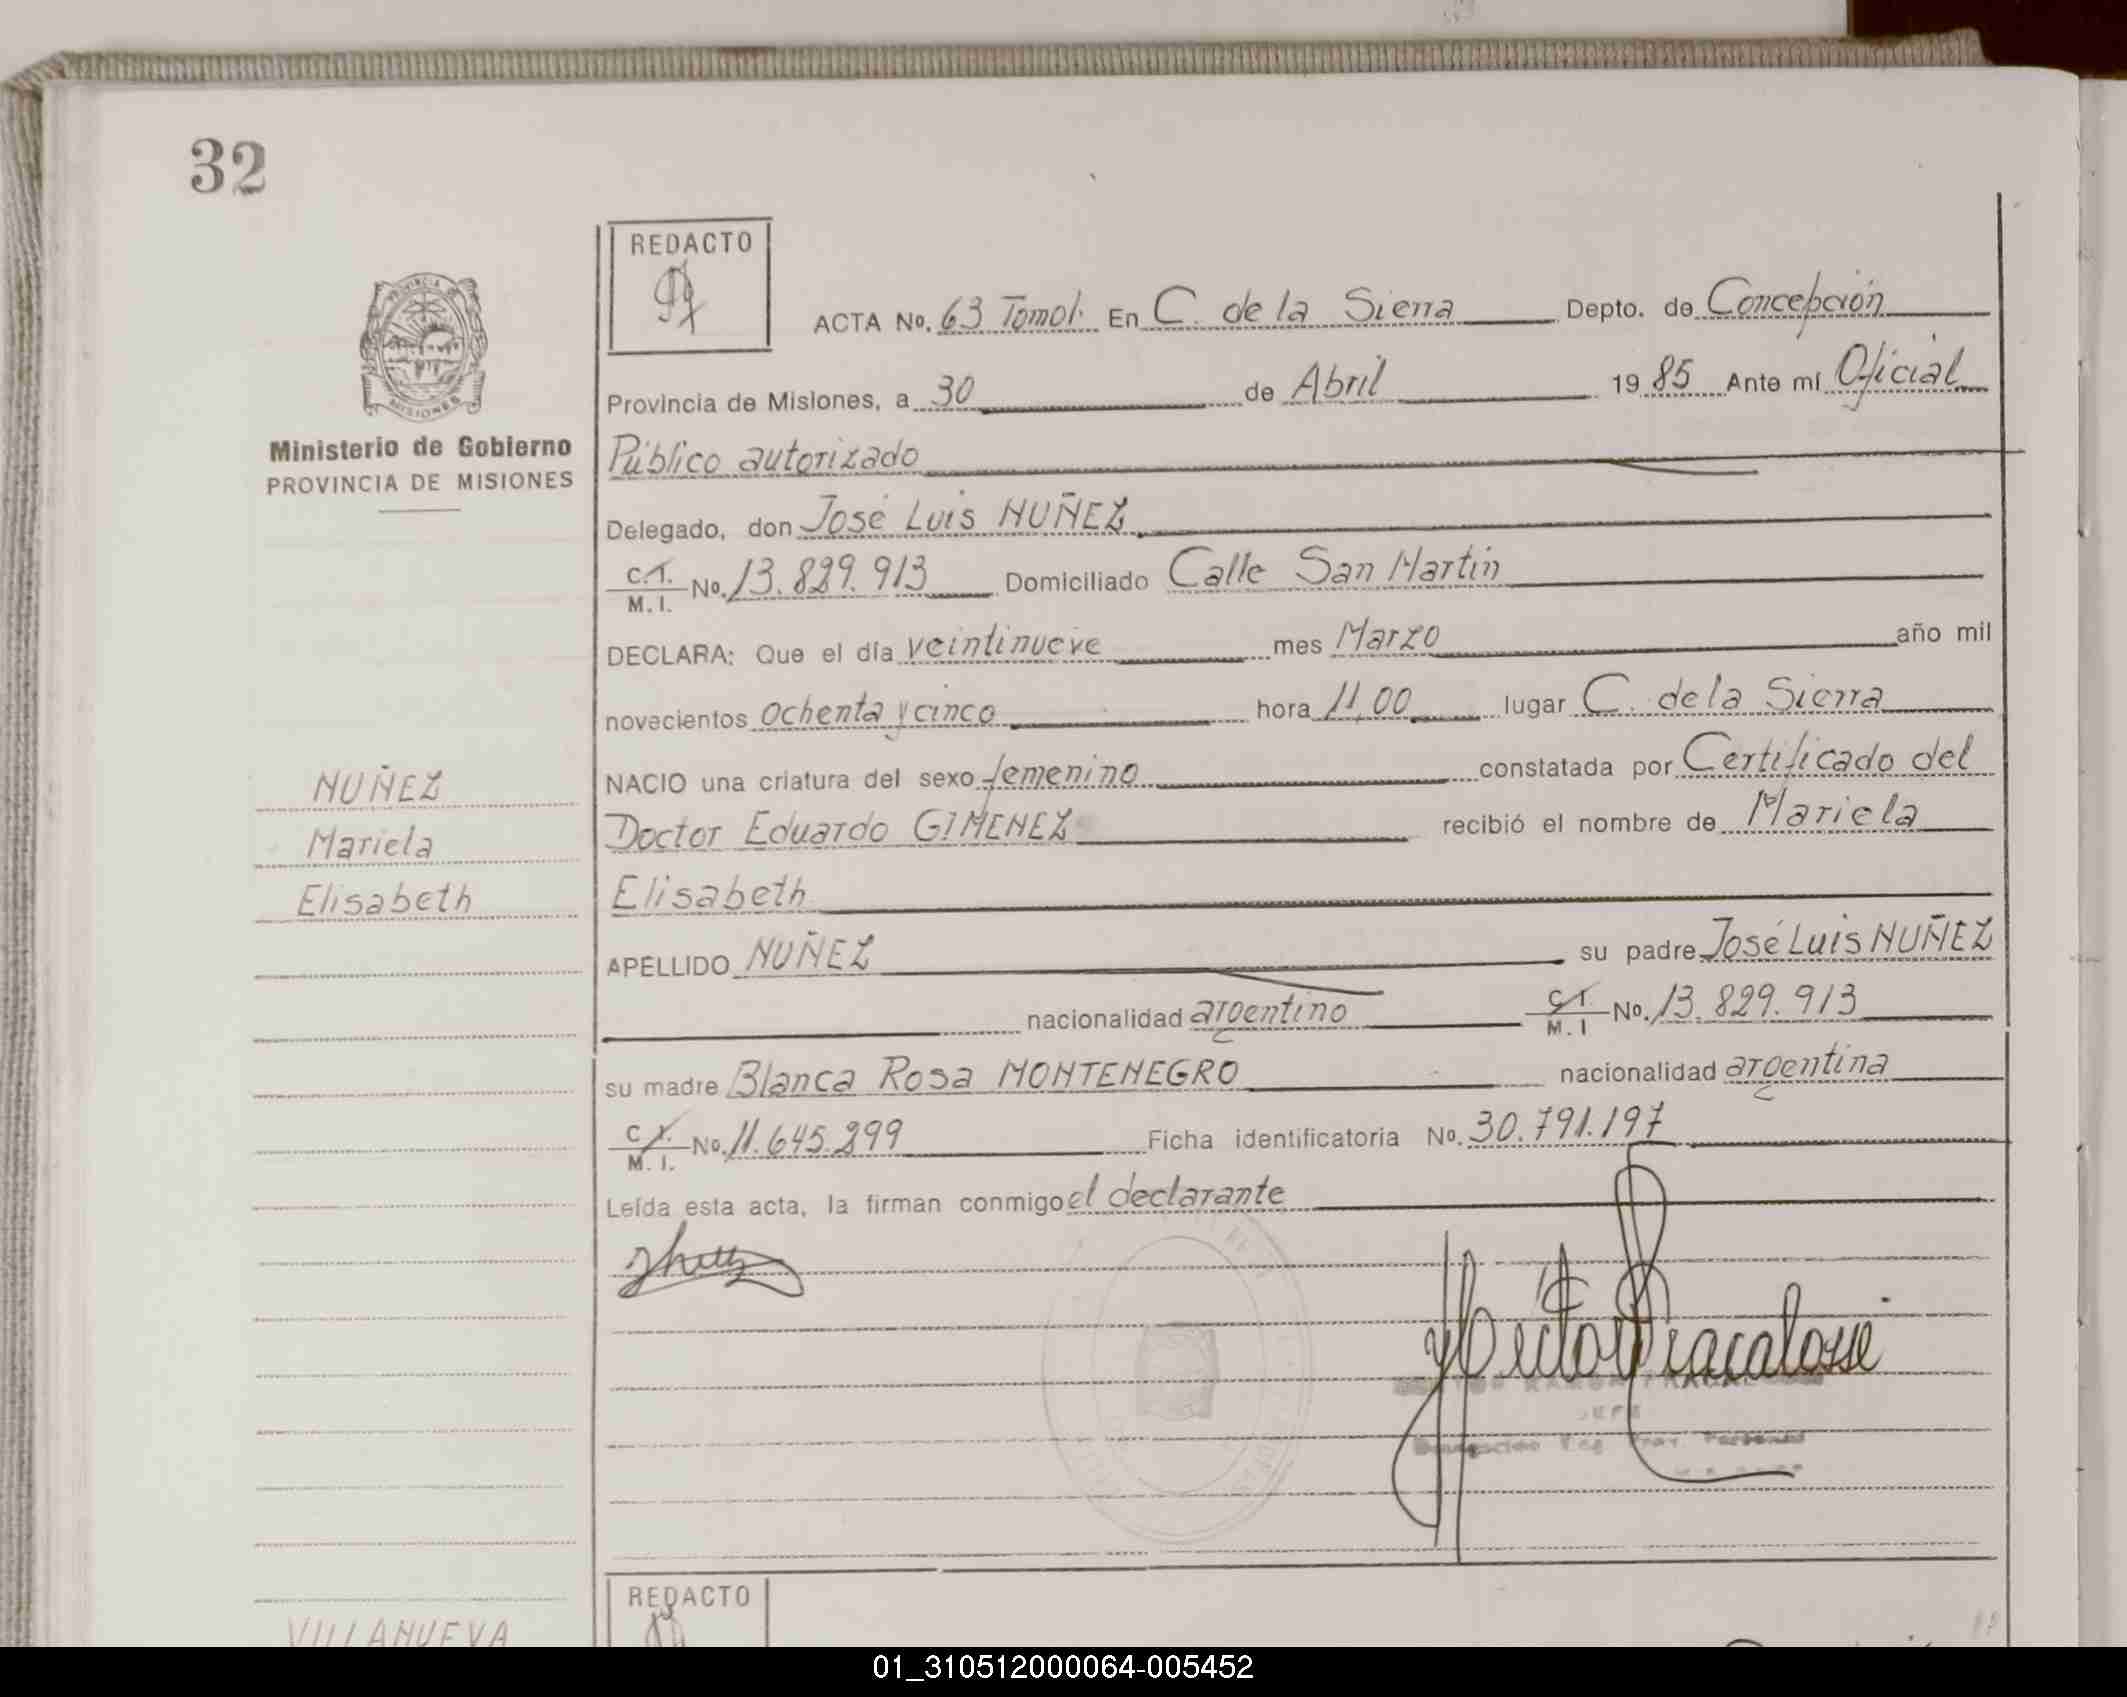 32
REDACTO
ACTA No. 63 Tomo I. En C. de la Sierra Depto. de Concepción
Provincia de Misiones, a 30 de Abril 19 85 Ante mí Oficial
Ministerio de Gobierno
PROVINCIA DE MISIONES
Público autorizado
Delegado, don José Luis NUÑEZ
C.I. M.I. No. 13.829.913 Domiciliado Calle San Martín
DECLARA: Que el día veintinueve mes Marzo año mil
novecientos ochenta y cinco hora 11,00 lugar C. de la Sierra
NACIO una criatura del sexo femenino constatada por Certificado del
Doctor Eduardo GIMENEZ recibió el nombre de Mariela
Elisabeth
NUÑEZ
Mariela
Elisabeth
APELLIDO NUÑEZ su padre José Luis NUÑEZ
nacionalidad argentino C.I. M.I No. 13.829.913
su madre Blanca Rosa MONTENEGRO nacionalidad argentina
C.I. M.I. No. 11.645.299 Ficha identificatoria No. 30.791.197
Leída esta acta, la firman conmigo el declarante
JEFE
REDACTO
VILLANUEVA
01_310512000064-005452